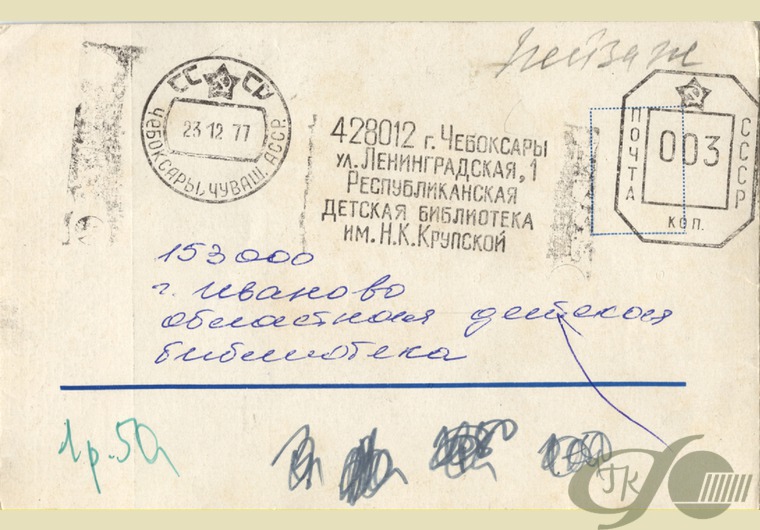 пейзаж
СССР
23 12 77
ЧЕБОКСАРЫ, ЧУВАШ. АССР.
428012 г. ЧЕБОКСАРЫ
УЛ. ЛЕНИНГРАДСКАЯ, 1
РЕСПУБЛИКАНСКАЯ
ДЕТСКАЯ БИБЛИОТЕКА
ИМ. Н.К. КРУПСКОЙ
ПОЧТА
СССР
003
КОП.
153000
г. Иваново
областная детская
библиотека
1р.50
ГК